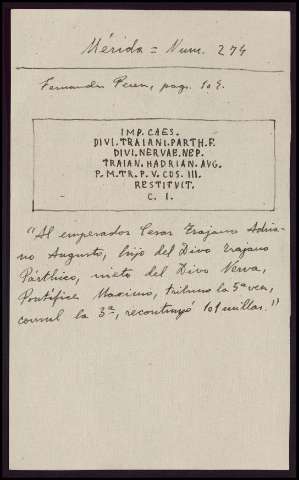 Mérida = Num. 274
Fernandez Perez, pag. 109.
IMP. CAES.
DIVI. TRAIANI. PARTH. F.
DIVI. NERVAE. NEP.
TRAIAN. HADRIAN. AVG.
P. M. TR. P. V. COS. III.
RESTITVIT.
C. I.
"Al emperador Cesar Trajano Adria-
no Augusto, hijo del Divo Trajano
Párthico, nieto del Divo Nerva,
Pontífice Maximo, tribuno la 5ª vez,
consul la 3ª, recontruyó 101 millas."